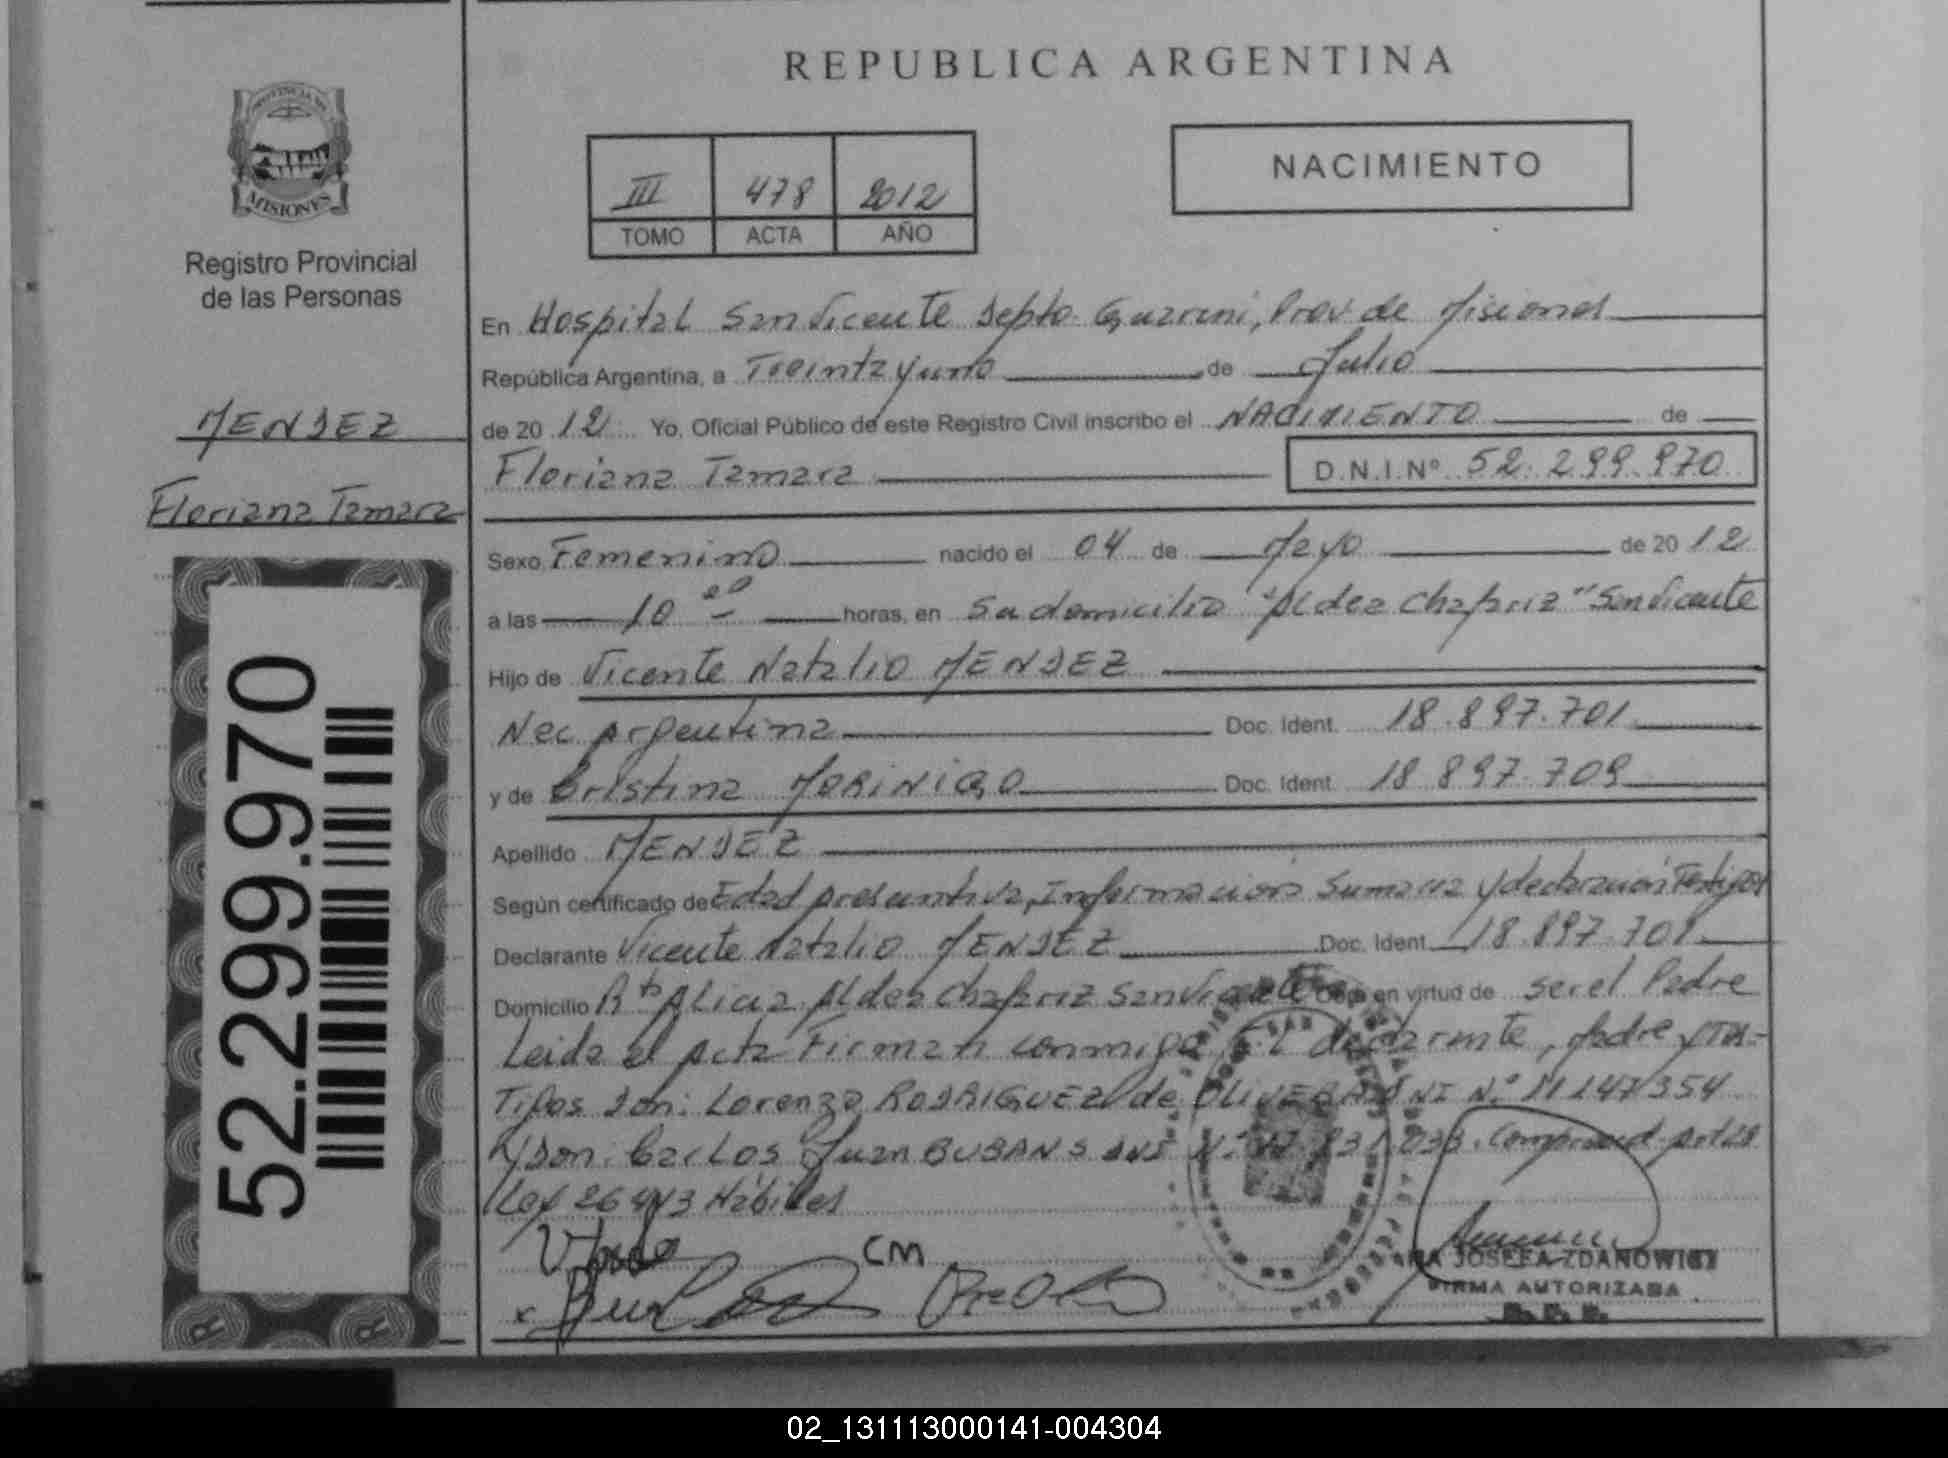 REPUBLICA ARGENTINA
PROVINCIA DE
MISIONES
Registro Provincial
de las Personas
III 478 2012
TOMO ACTA AÑO
NACIMIENTO
MENDEZ
Floriana Tamara
52.299.970
En Hospital San Vicente Depto Guarani, Prov de Misiones
República Argentina, a Treinta y uno de Julio
de 2012 Yo, Oficial Público de este Registro Civil inscribo el NACIMIENTO de
Floriana Tamara D.N.I.Nº 52.299.970
Sexo Femenino nacido el 04 de Mayo de 2012
a las 10 horas, en Su domicilio "Aldea Chafariz" San Vicente
Hijo de Vicente Natalio MENDEZ
Nac Argentina Doc. Ident. 18.897.701
y de Cristina MORINIGO Doc. Ident. 18.897.709
Apellido MENDEZ
Según certificado de Edad presuntiva, Informacion Sumaria y declaracion Testigos
Declarante Vicente Natalio MENDEZ Doc. Ident. 18.897.701
Domicilio Aldea Chafariz San Vicente en virtud de ser el Padre
Leida el Acta Firman conmigo El declarante, Madre y Tes-
Tigos Don: Lorenzo RODRIGUEZ de OLIVERA DNI Nº 11147354
Y Don: Carlos Juan DNI Nº
Ley 26413 Hábiles
CM
JOSEFA ZDANOWICZ
FIRMA AUTORIZADA
R R
02_131113000141-004304